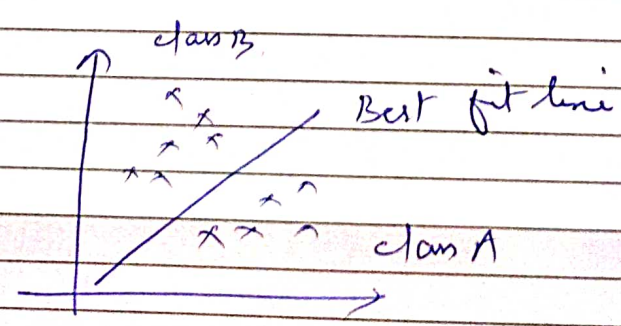 class B
Best fit line
class A